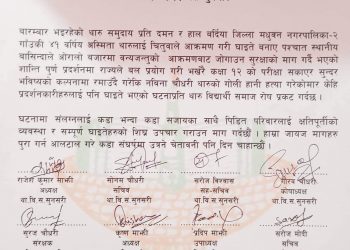 बारम्बार भइरहेको थारु समुदाय प्रति दमन र हाल बर्दिया जिल्ला मधुवन नगरपालिका-२
गाउँकी ४१ वर्षिय अस्मिता थारुलाई चितुवाले आक्रमण गरी घाइते बनाए पश्चात स्थानीय
बासिन्दाले ओराली बजारमा वन्यजन्तुको आक्रमणबाट जोगाउन सुरक्षाको माग गर्दै भएको
शान्ति पूर्ण प्रदर्शनमा राज्यले बल प्रयोग गरी भर्खरै कक्षा १२ को परीक्षा सकाएर सुन्दर
भविष्यको कल्पनामा रमाउदै गरेकि नबिना चौधरी थारुको गोली हानी हत्या गरेकोमार केहि
प्रदर्शनकारीहरुलाई पनि घाइते भएको घटनाप्रति थारु विद्यार्थी समाज रोष प्रकट गर्दछ ।
घटनामा संलग्नलाई कडा भन्दा कडा सजायका साथै पिडित परिवारलाई क्षतिपूर्तीको
व्यवस्था र सम्पूर्ण घाइतेहरुको शिघ्र उपचार गराउन माग गर्दछौं । हाम्रा जायज मागहरु
पुरा गर्न आलटाल गरे कडा संघर्षमा उत्रने चेतावनी पनि दिन चाहान्छौं ।
राजेश कुमार माझी सोनम चौधरी सरोज बिश्वास गौरव चौधरी
अध्यक्ष सचिव सह-सचिव कोषाध्यक्ष
था.वि.स.सुनसरी था.वि.स.सुनसरी था.वि.स.सुनसरी था.वि.स.सुनसरी
सुरज चौधरी कृष्ण माझी प्रदिप माझी सरोज मोदी
संरक्षक अध्यक्ष उपाध्यक्ष सचिव